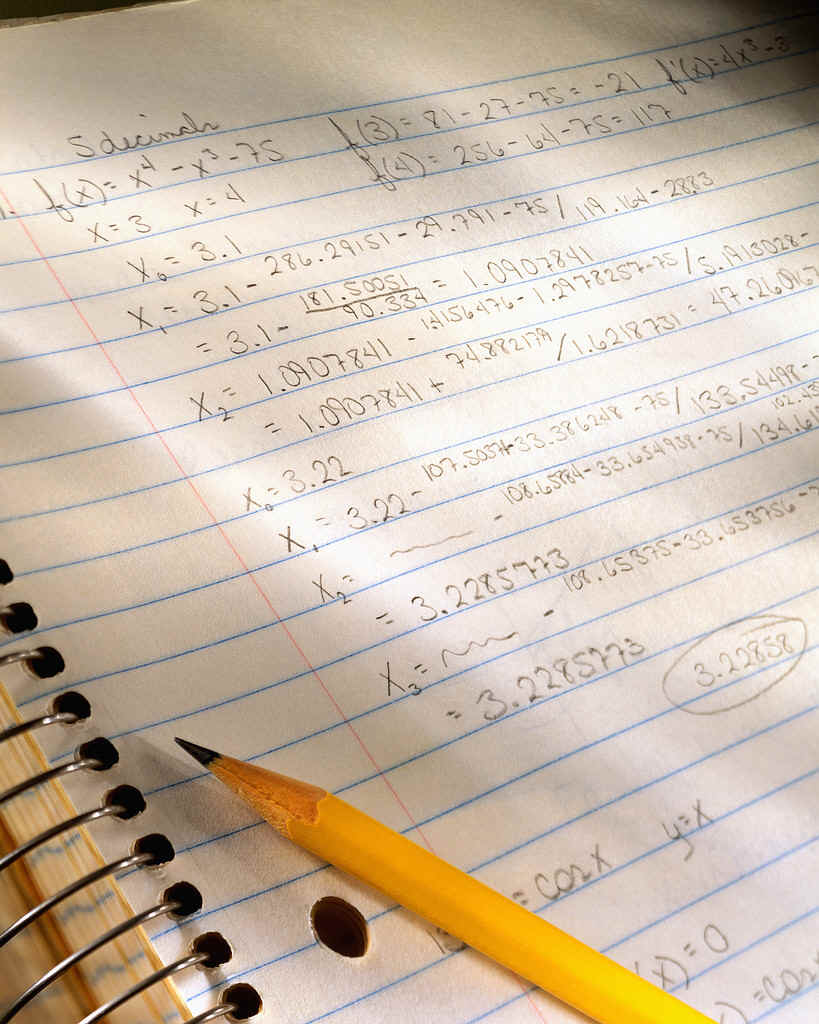 5 decimals
f(3) = 81 - 27 - 75 = -21 f'(x) = 4x³ - 3
1. f(x) = x⁴ - x³ - 75
f(4) = 256 - 64 - 75 = 117
x = 3 x = 4
x₀ = 3.1
x₁ = 3.1 - 286.29151 - 29.791 - 75 / 119.164 - 28.83
= 3.1 - 181.50051 / 90.334 = 1.0907841
x₂ = 1.0907841 - 1.4156476 - 1.2978257 - 75 / 5.1913028 -
= 1.0907841 + 74.882179 / 1.6218731 = 47.260967
x₀ = 3.22
x₁ = 3.22 - 107.50574 - 33.386248 - 75 / 133.54498 -
- 108.65884 - 33.654938 - 75 / 134.61
x₂ =
= 3.2285773 - 108.65375 - 33.653756 -
x₃ =
= 3.2285773 3.22858
= cos x y = x
(x) = 0
) = cos